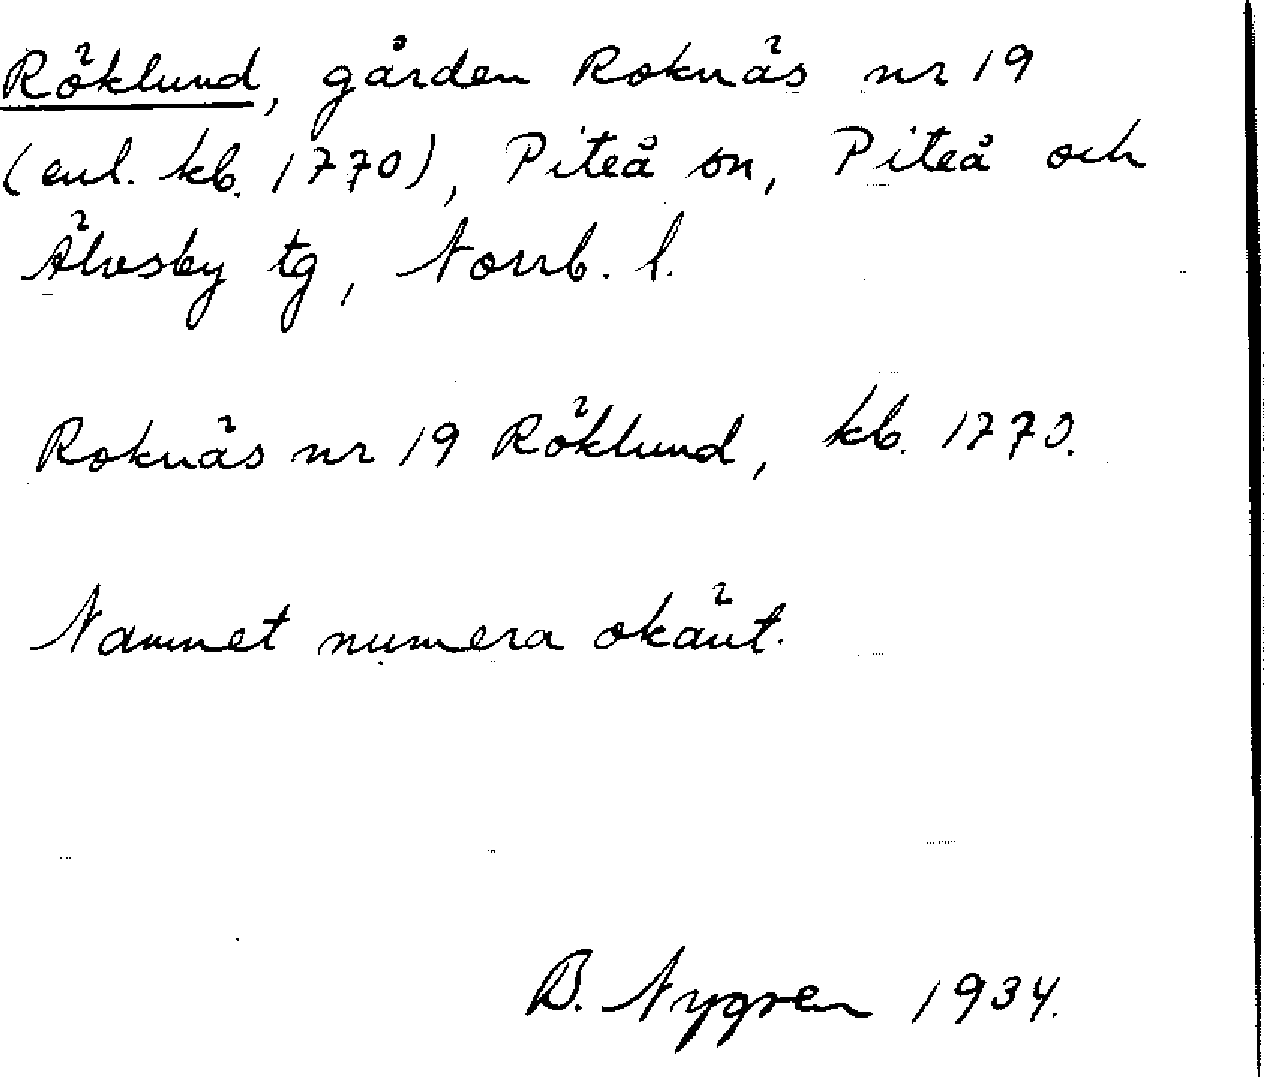 Röklund, gården Roknäs nr 19
(enl. kb. 1770), Piteå sn, Piteå och
Älvsby tg, Norrb. l.
Roknäs nr 19 Röklund, kb. 1770.
Namnet numera okänt.
B. Nygren 1934.